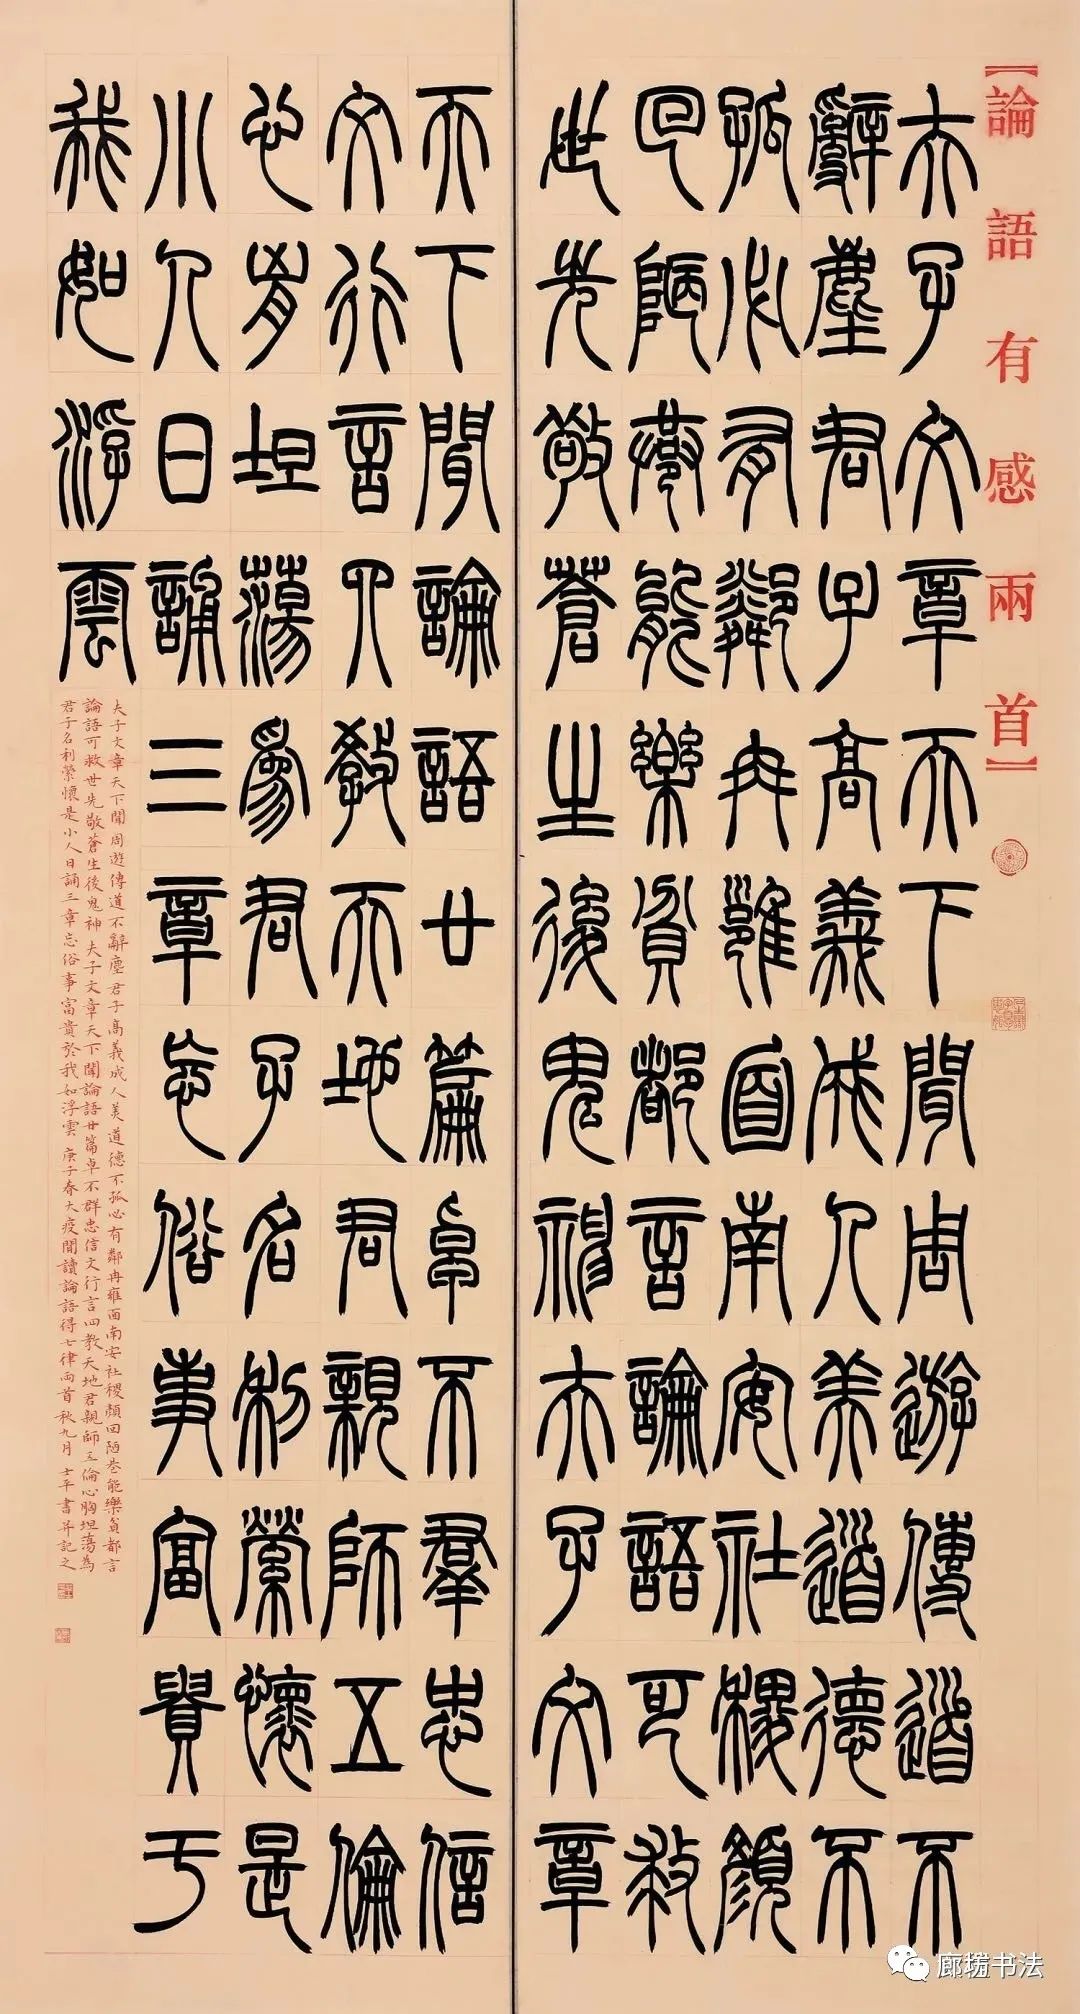 【論語有感兩首】
夫子文章天下聞周遊傳道不
辭塵君子高義成人美道德不
孤必有鄰冉雍面南安社稷顏
回陋巷能樂貧都言論語可救
世先敬蒼生後鬼神夫子文章
天下聞論語廿篇卓不羣忠信
文行言四教天地君親師五倫
心胸坦蕩為君子名利縈懷是
小人日誦三章忘俗事富貴于
我如浮雲
夫子文章天下聞周遊傳道不辭塵君子高義成人美道德不孤必有鄰冉雍面南安社稷顏回陋巷能樂貧都言
論語可救世先敬蒼生後鬼神夫子文章天下聞論語廿篇卓不群忠信文行言四教天地君親師五倫心胸坦蕩為
君子名利縈懷是小人日誦三章忘俗事富貴於我如浮雲 庚子春大疫間讀論語得七律兩首秋九月 士平書并記之
书法